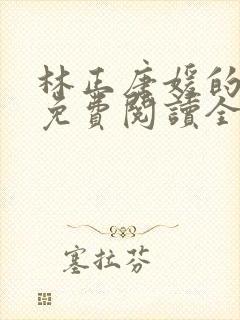 林正唐媛的
免費閱讀全
塞拉芬